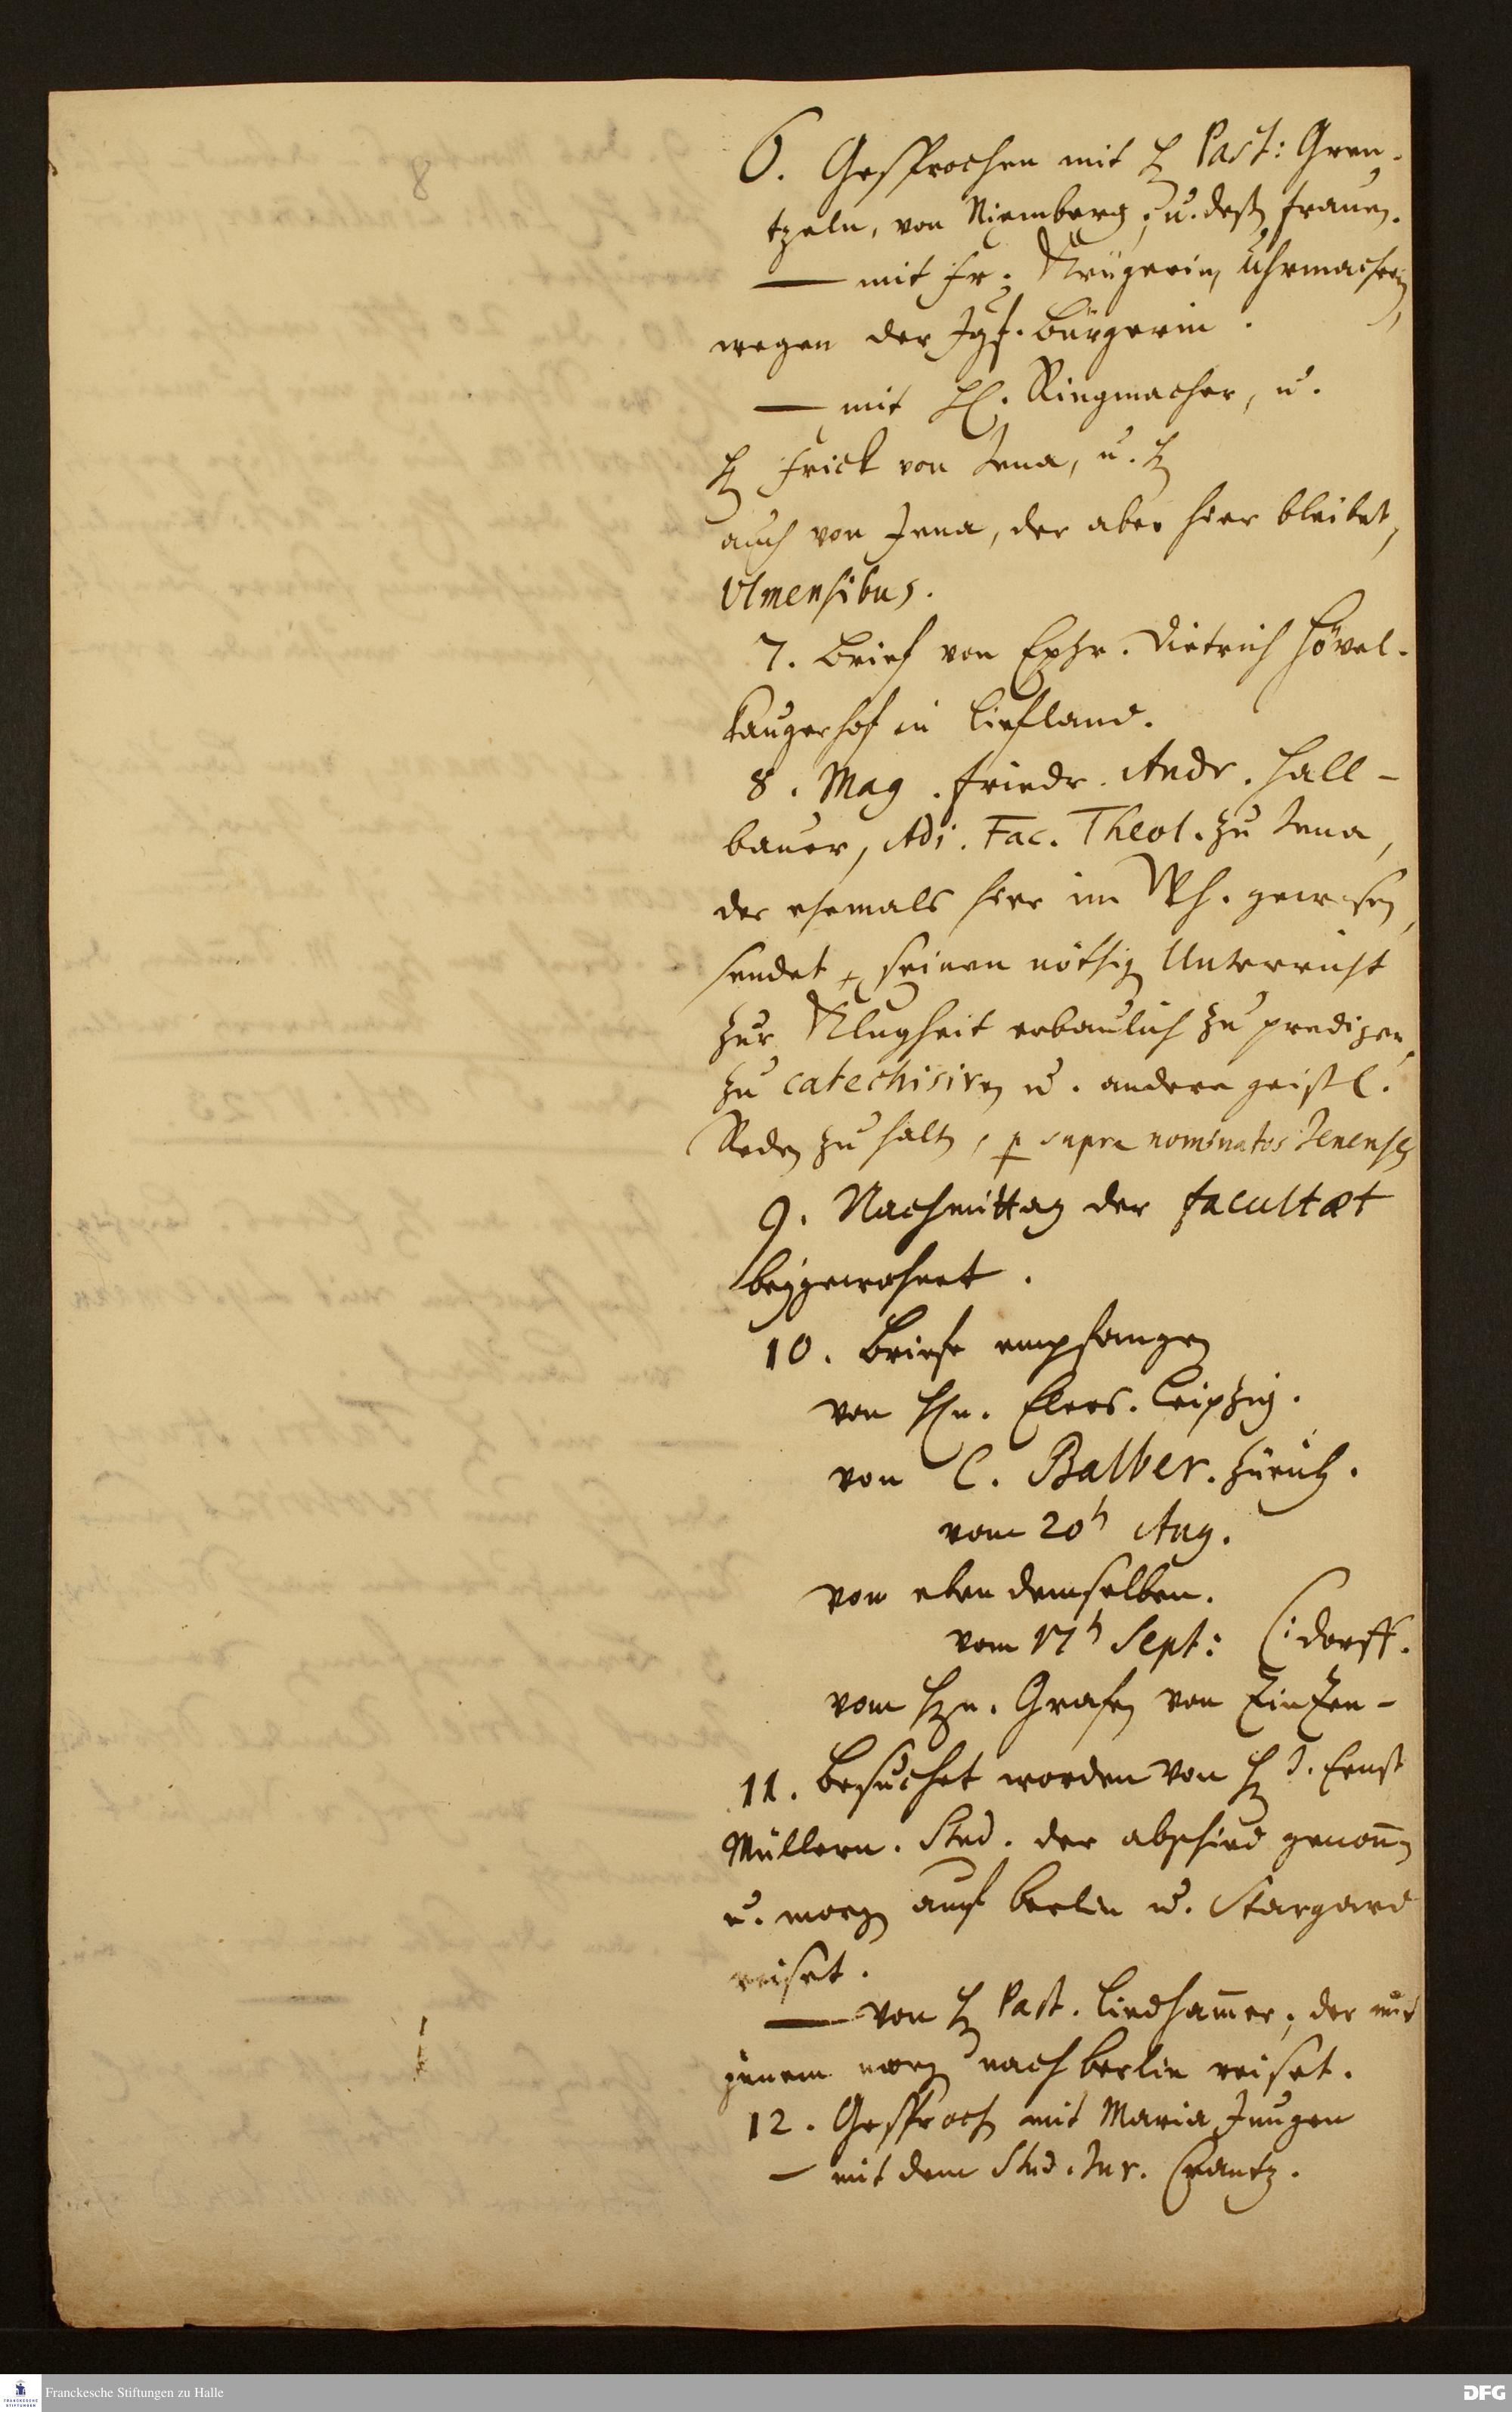 6. Gesprochen mit H. Past: Gren-
tzeln, von Niemberg, u. deß. frauen.
— mit Fr. Krügerin, Uhrmacherin,
wegen der Jgf. Bürgerin.
— mit H. Ringmacher, u.
H. Frick von Jena, u. H.
auch von Jena, der aber hier bleibet,
Ulmensibus.
7. Brief von Ephr. Dietrich Hövel.
Kaugershof in Liefland.
8. Mag. Friedr. Andr. Hall-
bauer, Adj. Fac. Theol. zu Jena,
der ehemals hier im Wh. gewesen,
sendet seinen nöthig Unterricht
zur Klugheit erbaulich zu predigen,
zu catechisiren u. andere geistl.
Reden zu halten, p supra nominatos Jenenses
9. Nachmittag der facultæt
beygewohnet.
10. Briefe empfangen
von Hn. Elers. Leipzig.
von C. Balber. Zürich.
vom 20t Aug.
von eben demselben.
vom 17t Sept: (: dorff.
vom Hrn. Grafen von Zinzen-
11. Besuchet worden von H. J. Ernst
Müllern. Stud. der abschied genom̅en
u. morgen auf Berlin u. Stargard
reiset.
— von H. Past. Liedham̅er, der mit
jenem morgen nach Berlin reiset.
12. Gesprochen mit Maria Jungen
— mit dem Stud. Jur. Crantz.
8
Franckesche Stiftungen zu Halle
DFG